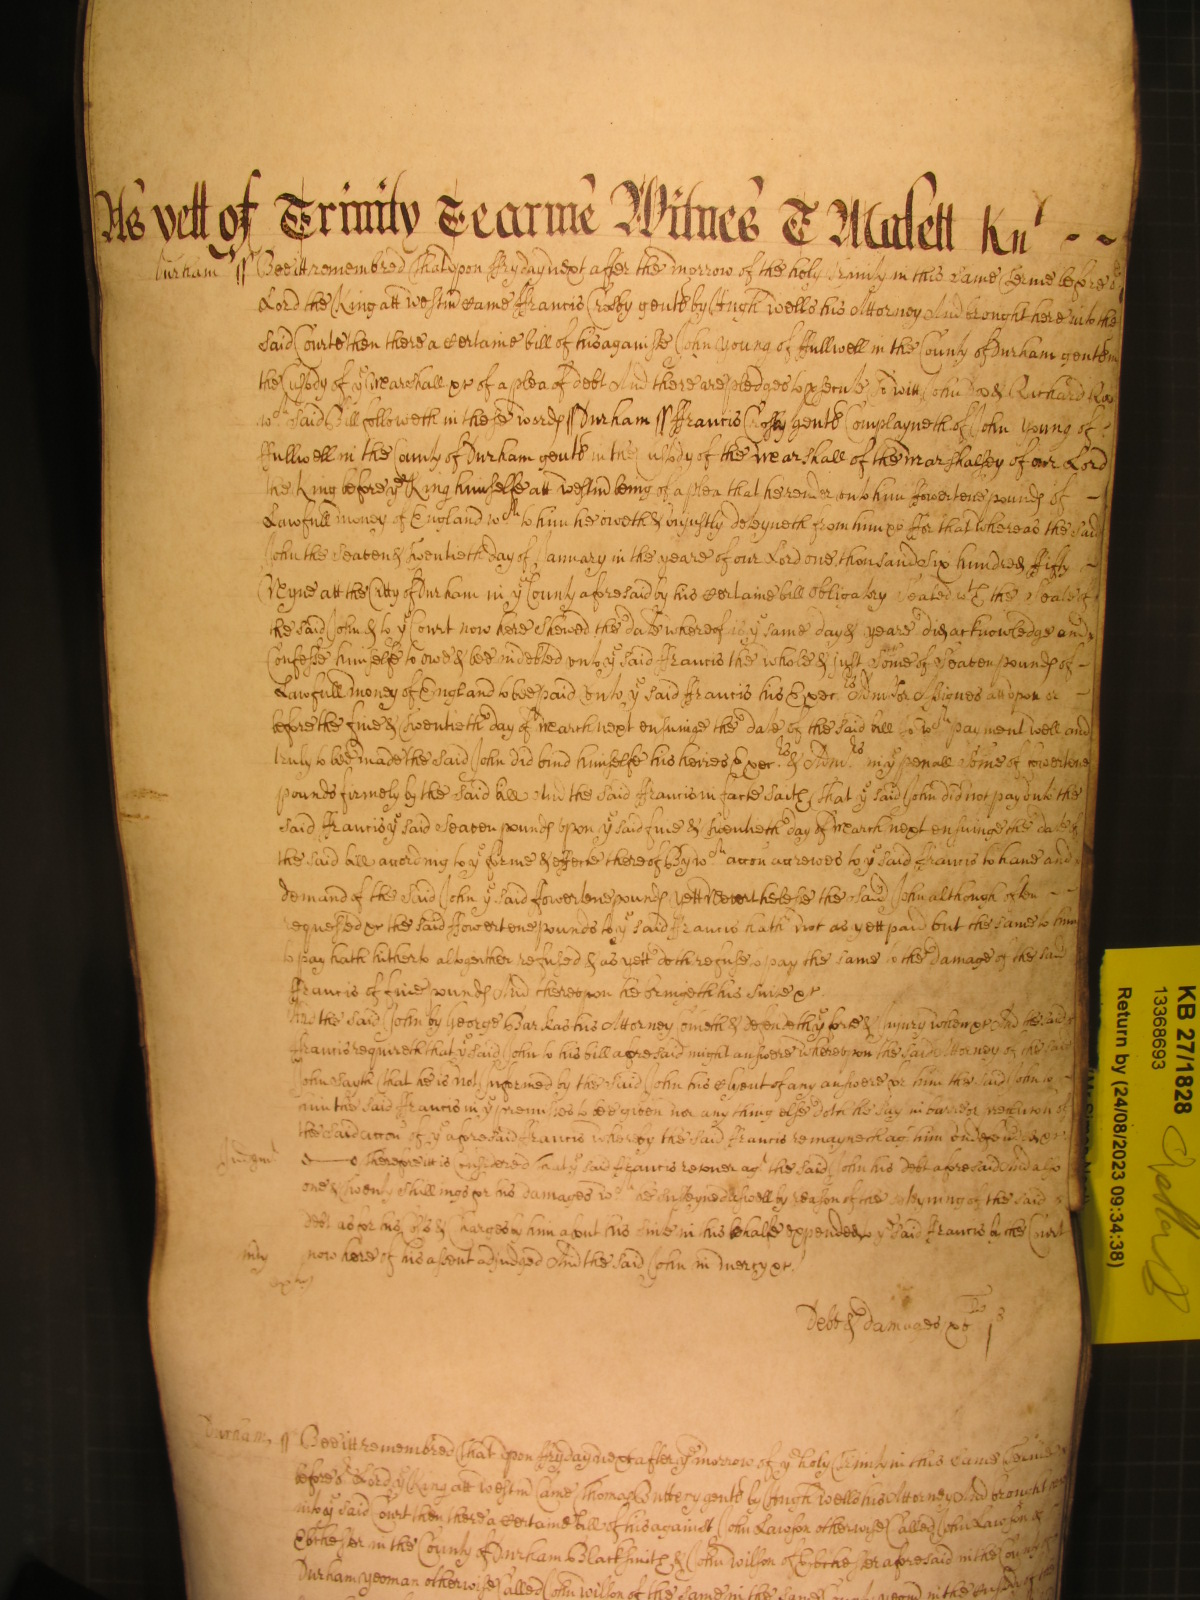 As yett of Trinity Tearme Witnes T Malett Knt
Durham ss Bee itt remembred That upon ffryday next after the morrow of the holy Trinity in this same Terme before
Lord the King att Westm came ffrancis Crosby gent by Hugh Wells his Attorney And brought here into the
said Courte then there a certaine bill of his against John Young of ffullwell in the County of Durham gent in
the Custody of ye Marshall &c of a plea of debt And there are pledges to prosecute to witt John Doe & Richard Roe
wch said Bill followeth in these words ss Durham ss ffrancis Crosby gent Complayneth of John Young of
ffullwell in the County of Durham gent in the Custody of the Marshall of the Marshalsey of our Lord
the King before ye King himselfe att Westm being of a plea that he render unto him ffowerteene pounds of
Lawfull money of England wch to him he oweth & unjustly deteyneth from him &c ffor that whereas the said
John the Seaven & twentieth day of January in the yeare of our Lord one thousand Six hundred ffifty
Nyne att the Citty of Durham in ye County aforesaid by his certaine bill obligatory Sealed wth the Seale of
the said John & to ye Court now here shewed the date whereof is ye same day & yeare did acknowledge and
Confesse himselfe to owe & bee indebted unto ye said ffrancis the whole & just Some of Seaven pounds of
Lawfull money of England to bee paid unto ye said ffrancis his Execrs Admrs or Assignes att upon or
before the five & twentieth day of March next ensuinge the date of the said bill To wch payment well and
truly to bee made the said John did bind himselfe his heires Execrs & Admrs in ye penall Some of fowerteene
pounds firmely by the said bill And the said ffrancis in facte saith That ye said John did not pay unto the
said ffrancis ye said Seaven pounds upon ye said five & twentieth day of March next ensuinge the date of
the said bill according to ye forme & effecte thereof By wch accon accrewes to ye said ffrancis to have and
demand of the said John ye said ffowerteene pounds Yett Neverthelesse the said John although often
requested &c the said ffowerteene pounds to ye said ffrancis hath not as yett paid but the same to him
to pay hath hitherto altogether refused & as yett doth refuse to pay the same to the Damage of the said
ffrancis of five pounds And thereupon he bringeth his suite &c
And the said John by George Barkas his Attorney cometh & defendeth ye force & Injury when &c And the said
ffrancis requireth that ye said John to his bill aforesaid might answere whereupon the said Attorney of the said
John sayth that he is not Informed by the said John his Clyent of any answere for him the said John to
him the said ffrancis in ye premisses to bee given nor any thing else doth he say in barre or preclusion of
the said accon of ye aforesaid ffrancis whereby the said ffrancis remayneth agt him undefended &c
Judgmt Therefore itt is Considered that ye said ffrancis recover agt the said John his Debt aforesaid And also
one & twenty shillings for his damages wch he susteyned aswell by reason of the deteyning of the said
debt as for his costs & Charges by him about his Suite in his behalfe expended to ye said ffrancis by the Court
mcy now here of his assent adjudged And the said John in mercy &c
Debt & damages xv li js
Durham ss Bee itt remembred That upon ffryday next after ye morrow of ye holy Trinity in this same Terme
before Lord ye King att Westm Came Thomas Buttery gent by Hugh Wells his Attorney And brought
into ye said Court then there a certaine Bill of his against John Lawson otherwise Called John Lawson of
in the County of Durham Blacksmith & John Wilson of aforesaid in the County
Durham yeoman otherwise Called John Wilson of the same in the same County yeom in the Custody of the
KB 27/1828
13368693
Return by (24/08/2023 09:34:38)